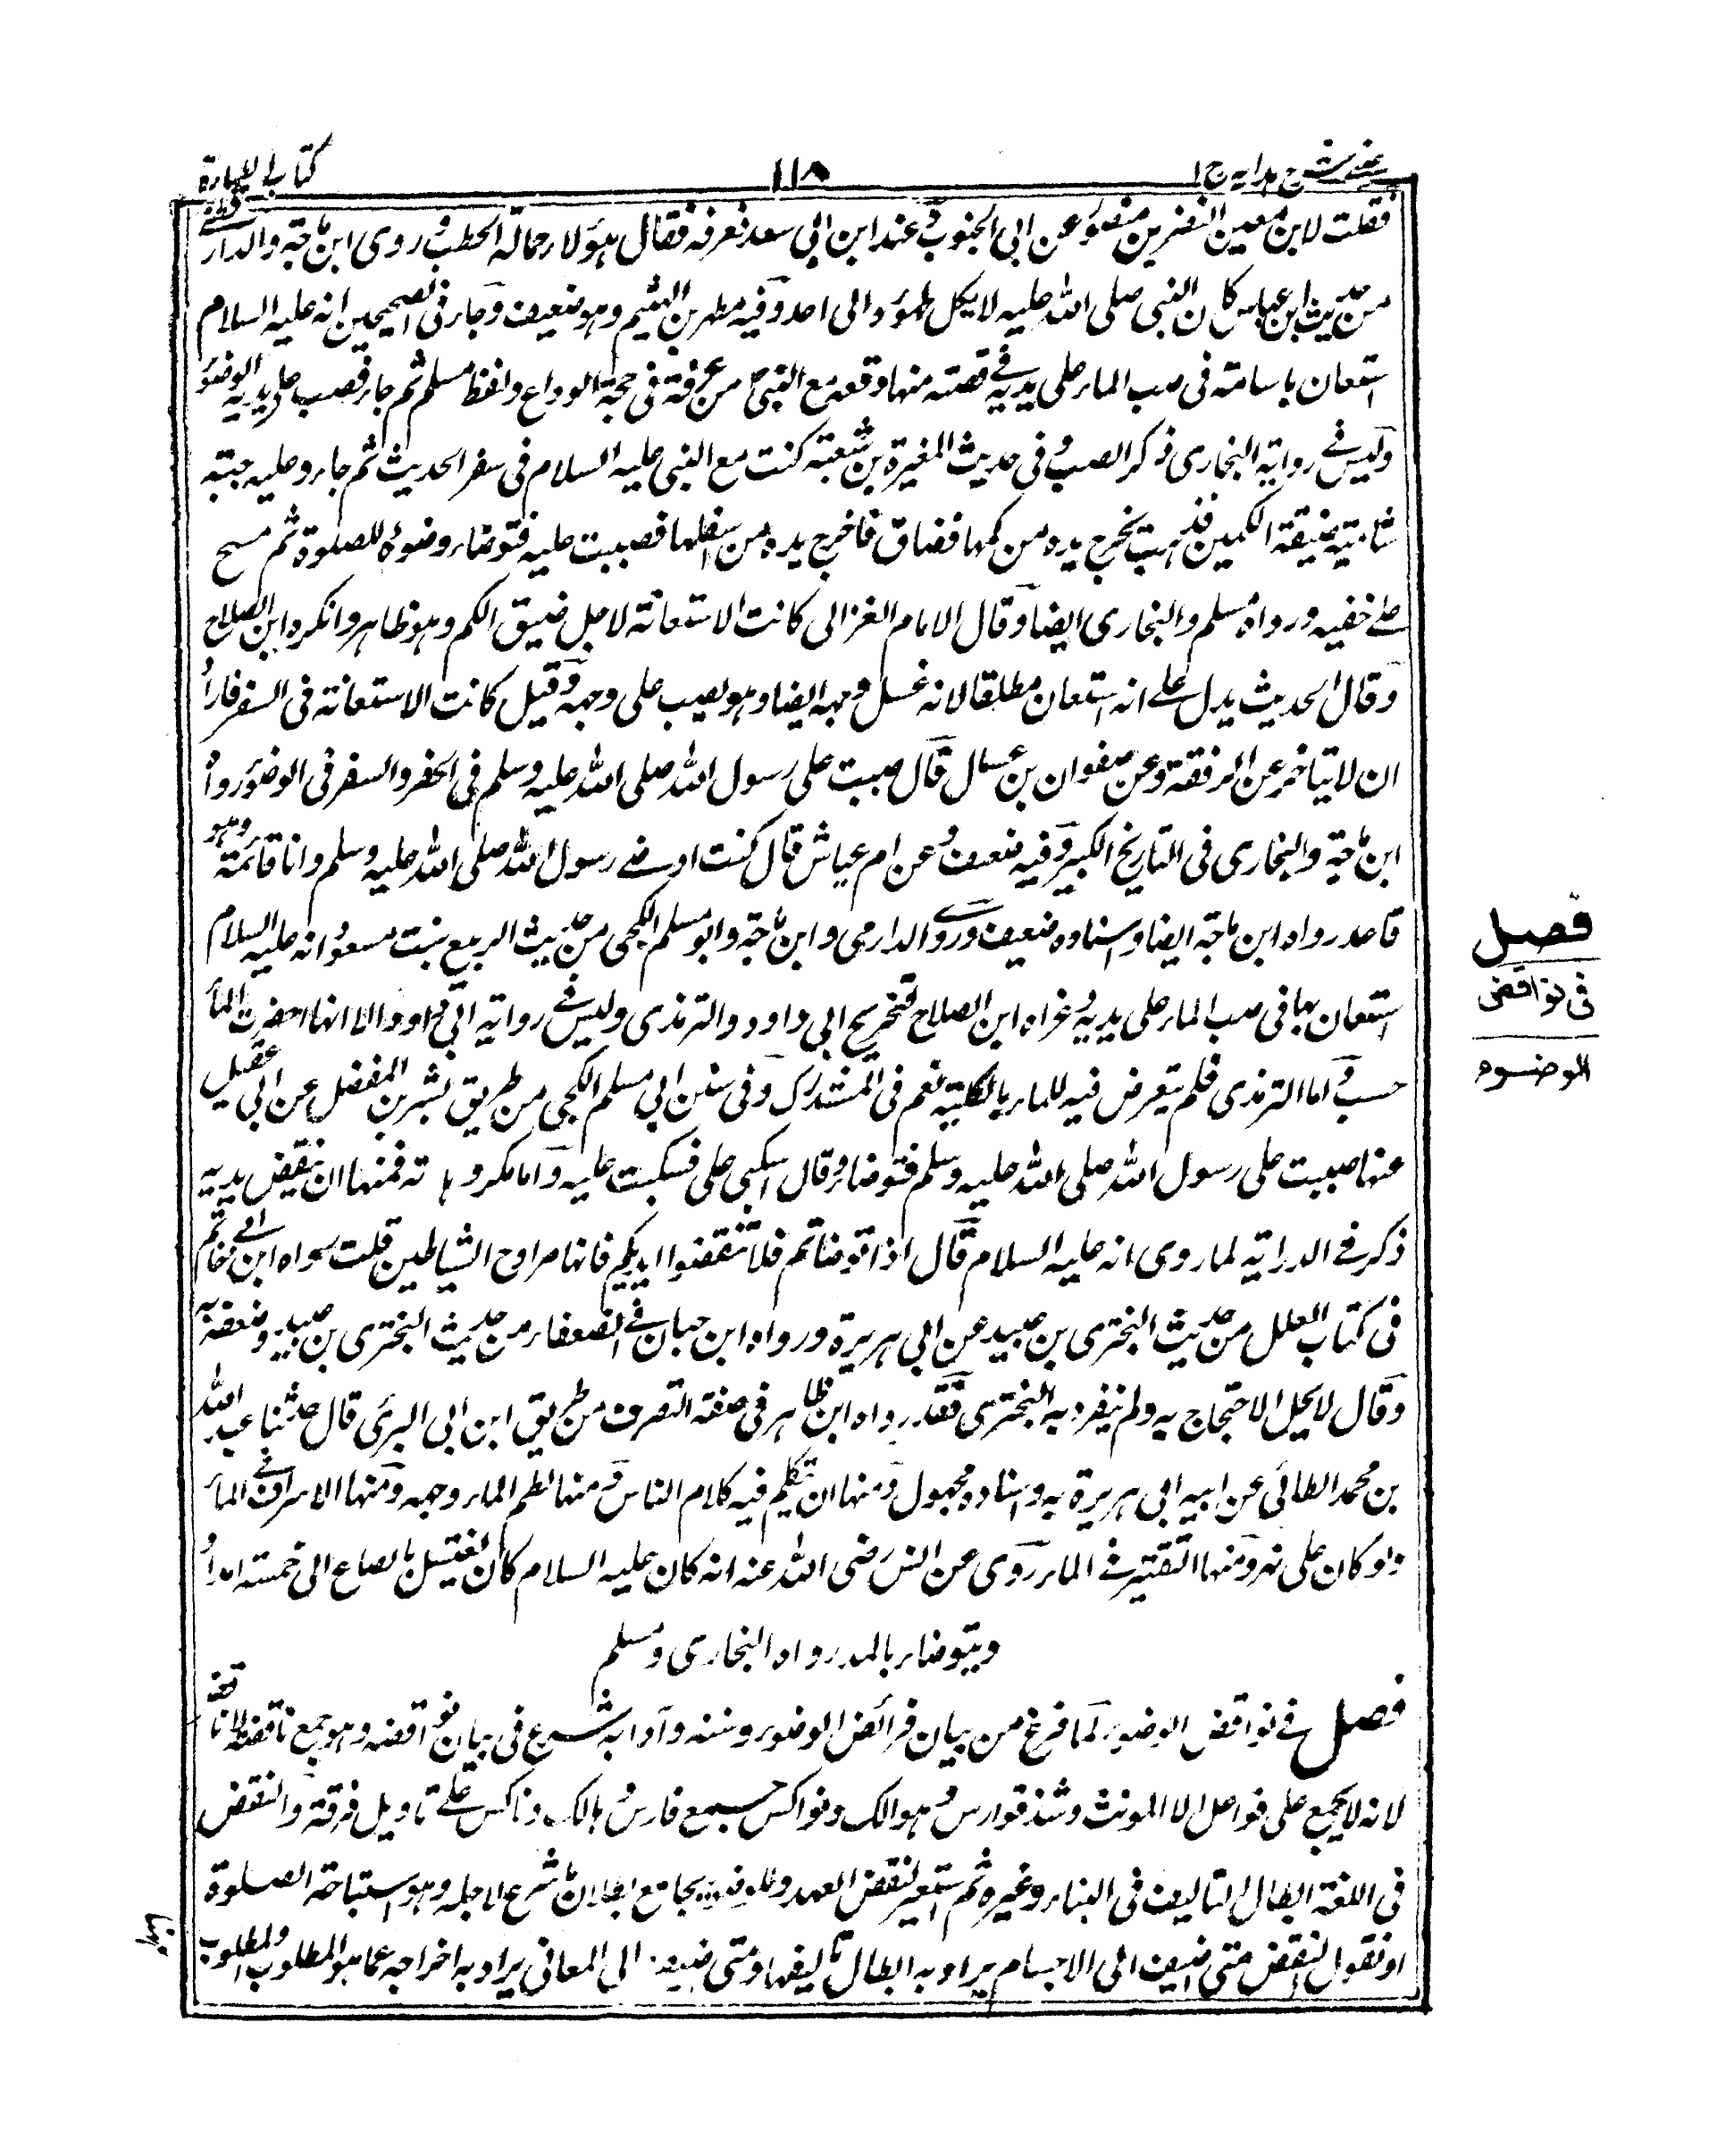 عینی شرح ہدایہ ج۱
۱۱۸
کتاب الطہارة
فقلت لابن معین النضر بن منصور عن ابی الجنوب وعنه ابن ابی سعد تعرفه فقال هؤلاء حمالة الحطب وروی ابن ماجة والدارقطنے
من حدیث ابن عباس کان النبی صلی الله علیه لا یکل طهوره الی احد وفیه مطهر بن الهیثم وهو ضعیف وجاء فی الصحیحین انه علیه السلام
استعان باسامة فی صب الماء علی یدیه فے قصته منها دفعه مع النبی من عرفة فی حجة الوداع ولفظ مسلم ثم جاء فصب علی یدیه الوضوء
ولیس فے روایة البخاری ذکر الصب وفی حدیث المغیرة بن شعبة کنت مع النبی علیه السلام فی سفر الحدیث ثم جاء وعلیه جبة
شامیة ضیقة الکمین فذهبت یخرج یده من کمها فضاق فاخرج یده من اسفلها فصببت علیه فتوضاء وضوئه للصلوة ثم مسح
علے خفیه ورواه مسلم والبخاری ایضا وقال الامام الغزالی کانت الاستعانة لاجل ضیق الکم وهو ظاهر وانکره ابن الصلاح
وقال الحدیث یدل علے انه استعان مطلقا لانه غسل وجهه ایضا وهو یصب علی وجهه وقیل کانت الاستعانة فی السفر فاراد
ان لا یتاخر عن الرفقة وعن صفوان بن عسال قال صببت علی رسول الله صلی الله علیه وسلم فی الحضر والسفر فی الوضوء رواه
ابن ماجة والبخاری فی التاریخ الکبیر وفیه ضعف وعن ام عیاش قال کنت اوضے رسول الله صلی الله علیه وسلم وانا قائمة وهو
قاعد رواه ابن ماجة ایضا واسناده ضعیف وروے الدارمی وابن ماجة وابو مسلم الکجی من حدیث الربیع بنت مسعود انه علیه السلام
استعان بها فی صب الماء علی یدیه وعزاه ابن الصلاح لتخریج ابی داود والترمذی ولیس فے روایة ابی داود الا انها احضرت الماء
حسب واما الترمذی فلم یتعرض فیه للماء بالکلیة نعم فی المستدرک وفی سنن ابی مسلم الکجی من طریق بشر بن المفضل عن ابی عقیل
عنها صببت علی رسول الله صلی الله علیه وسلم فتوضاء وقال اسکبی علی فسکبت علیه واما مکروهاته فمنها ان ینفض یدیه
ذکر فے الدرایة لما روی انه علیه السلام قال اذا توضاتم فلا تنفضوا ایدیکم فانها مراوح الشیاطین قلت رواه ابن ابے حاتم
فی کتاب العلل من حدیث البختری بن عبید عن ابی هریرة ورواه ابن حبان فے الضعفاء من حدیث البختری بن عبید وضعفه به
وقال لا یحل الاحتجاج به ولم ینفرد به البختری فقد رواه ابن طاهر فی صفة التصوف من طریق ابن ابی السری قال حدثنا عبد الله
بن محمد الطائی عن ابیه ابی هریرة به واسناده مجهول ومنها ان یتکلم فیه کلام الناس ومنها لطم الماء وجهه ومنها الاسراف فے الماء
ولو کان علی نهر ومنها التقتیر فے الماء روی عن انس رضی الله عنه انه کان علیه السلام کان یغتسل بالصاع الی خمسة امداد
ویتوضاء بالمد رواه البخاری ومسلم
فصل فے نواقض الوضوء لما فرغ من بیان فرائض الوضوء وسننه وآدابه شرع فی بیان نواقضه وهو جمع ناقضة لا ناقضه
لانه لا یجمع علی فواعل الا المونث وشذ فوارس وهوالک ونواکس جمع فارس وهالک وناکس علے تاویل فرقة والنقض
فی اللغة ابطال التالیف فی البناء وغیره ثم استعیر لنقض العهد وللوضوء بجامع ابطال ما شرع لاجله وهو استباحة الصلوة
او نقول النقض متی اضیف الی الاجسام یراد به ابطال تالیفها ومتی اضیف الی المعانی یراد به اخراجه عما هو المطلوب والمطلوب
فصل
فی نواقض
الوضوء